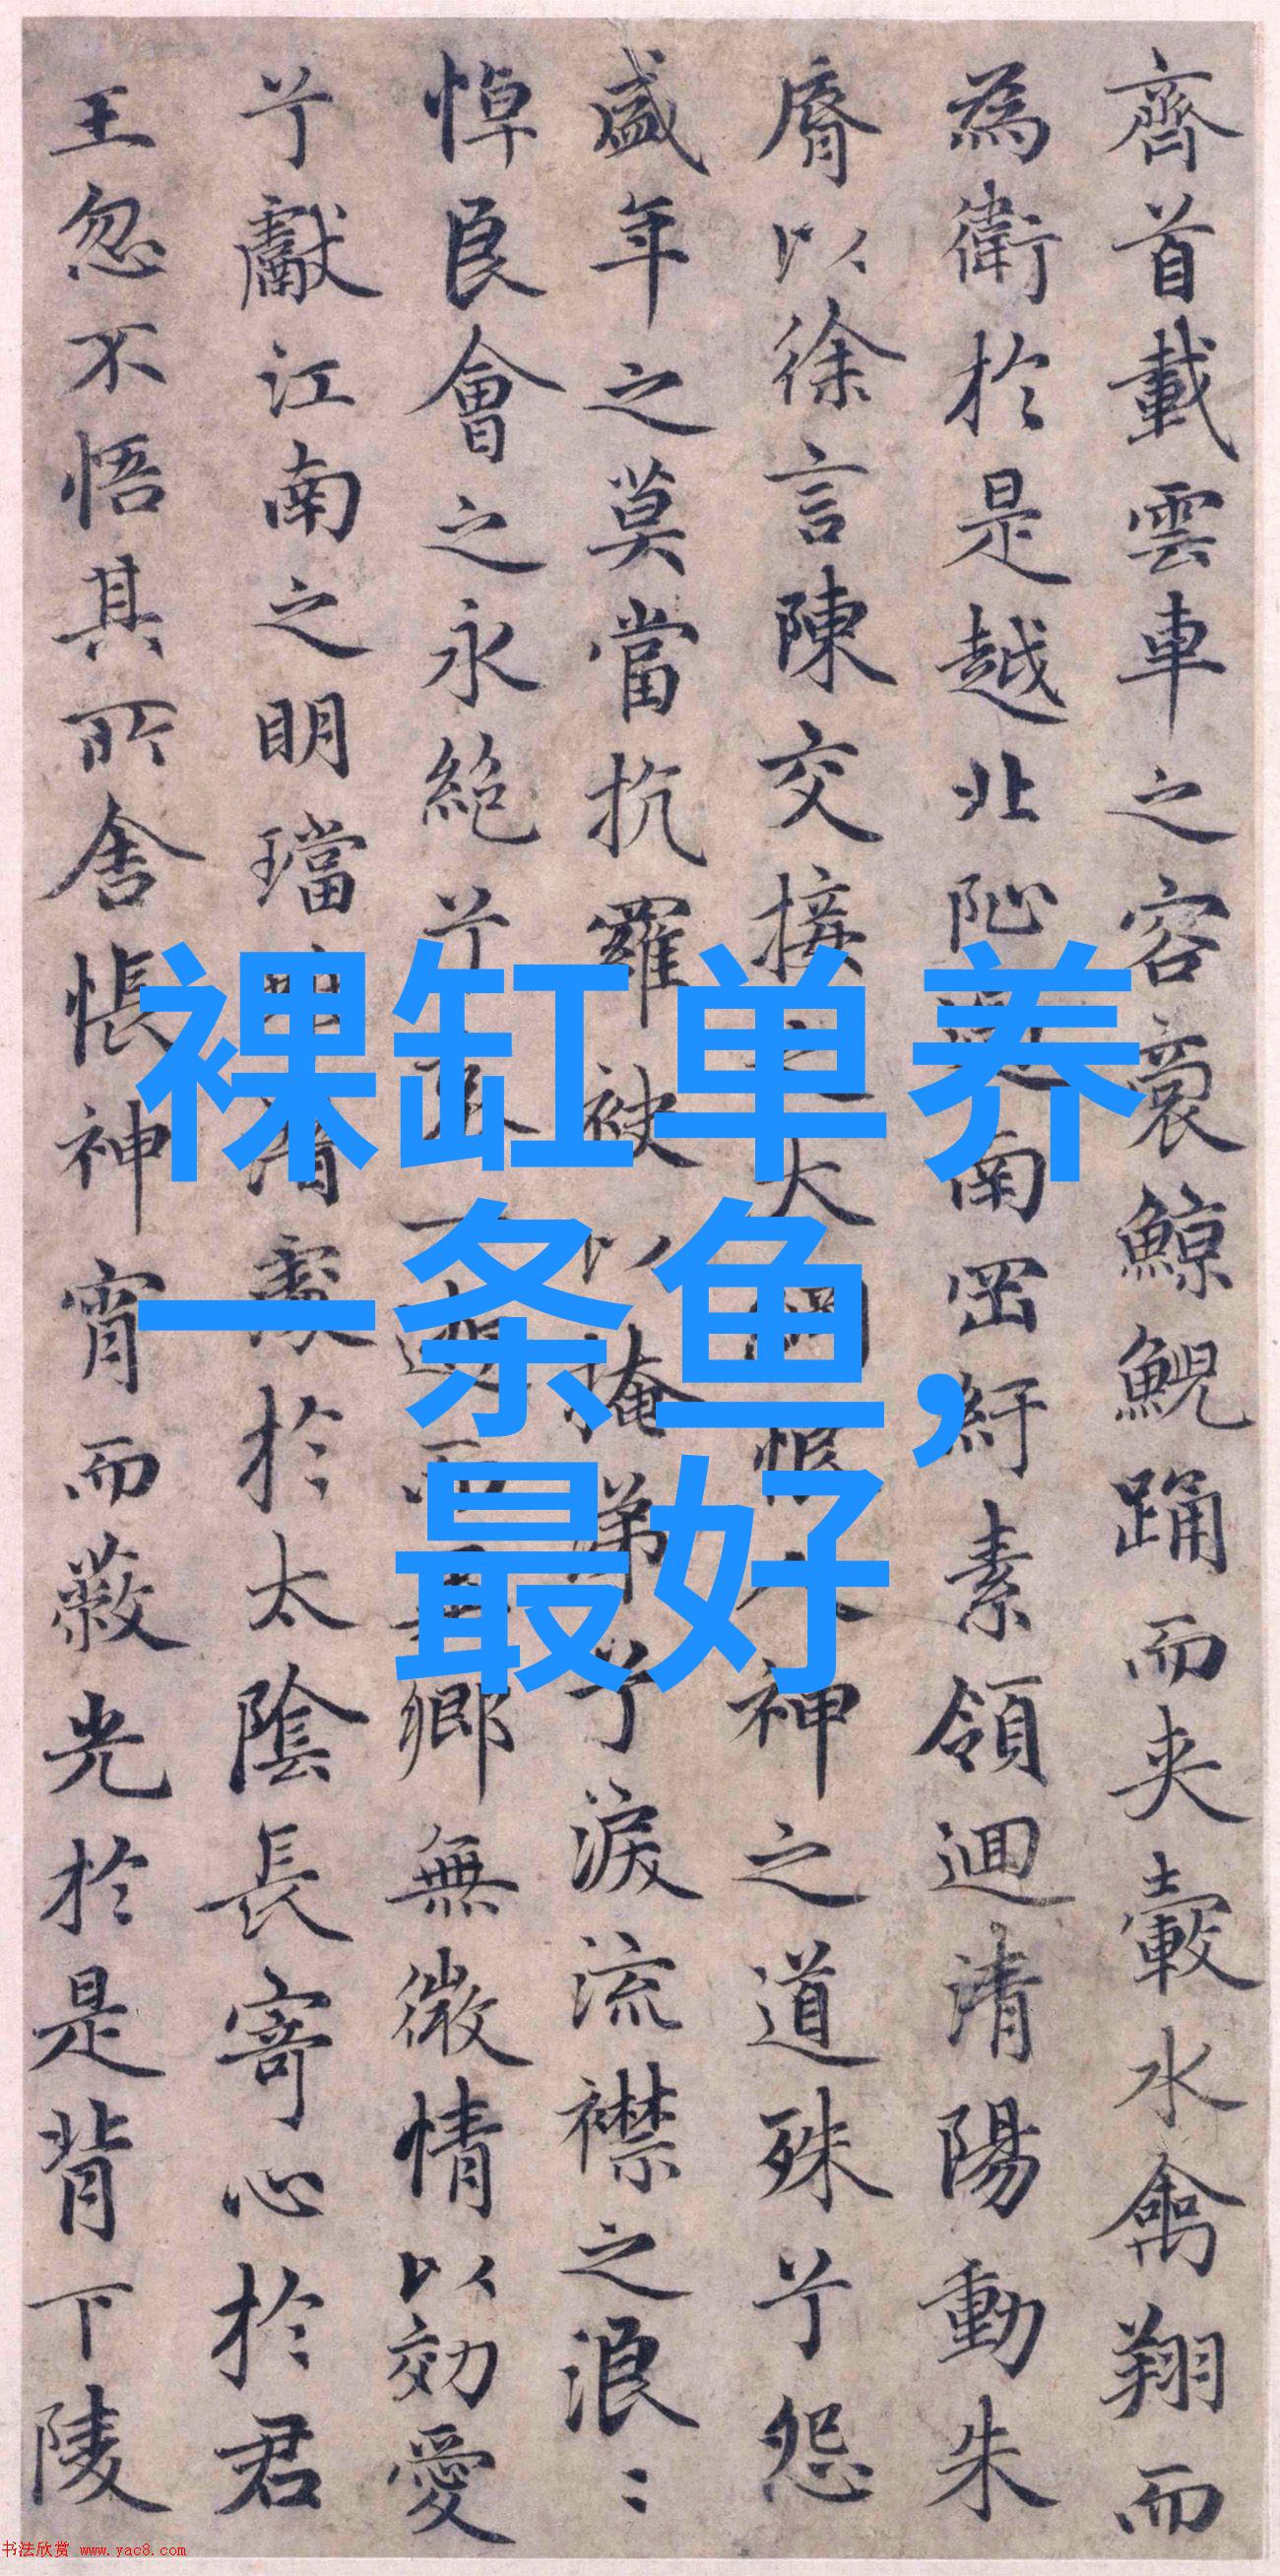 齊首載雲車之容裔鯨鯢踊而夾轂水禽翔而
為衛於是越北沚過南岡紆素領迴清陽動朱
脣以徐言陳交接之大綱恨人神之道殊兮怨
盛年之莫當抗羅袂以掩涕兮淚流襟之浪〻
悼良會之永絕兮哀一逝而異鄉無微情以効愛
兮獻江南之明璫雖潛處於太陰長寄心於君
王忽不悟其所舍悵神宵而蔽光於是背下陵
裸缸单养
一条鱼,
最好
书法欣赏 www.yac8.com